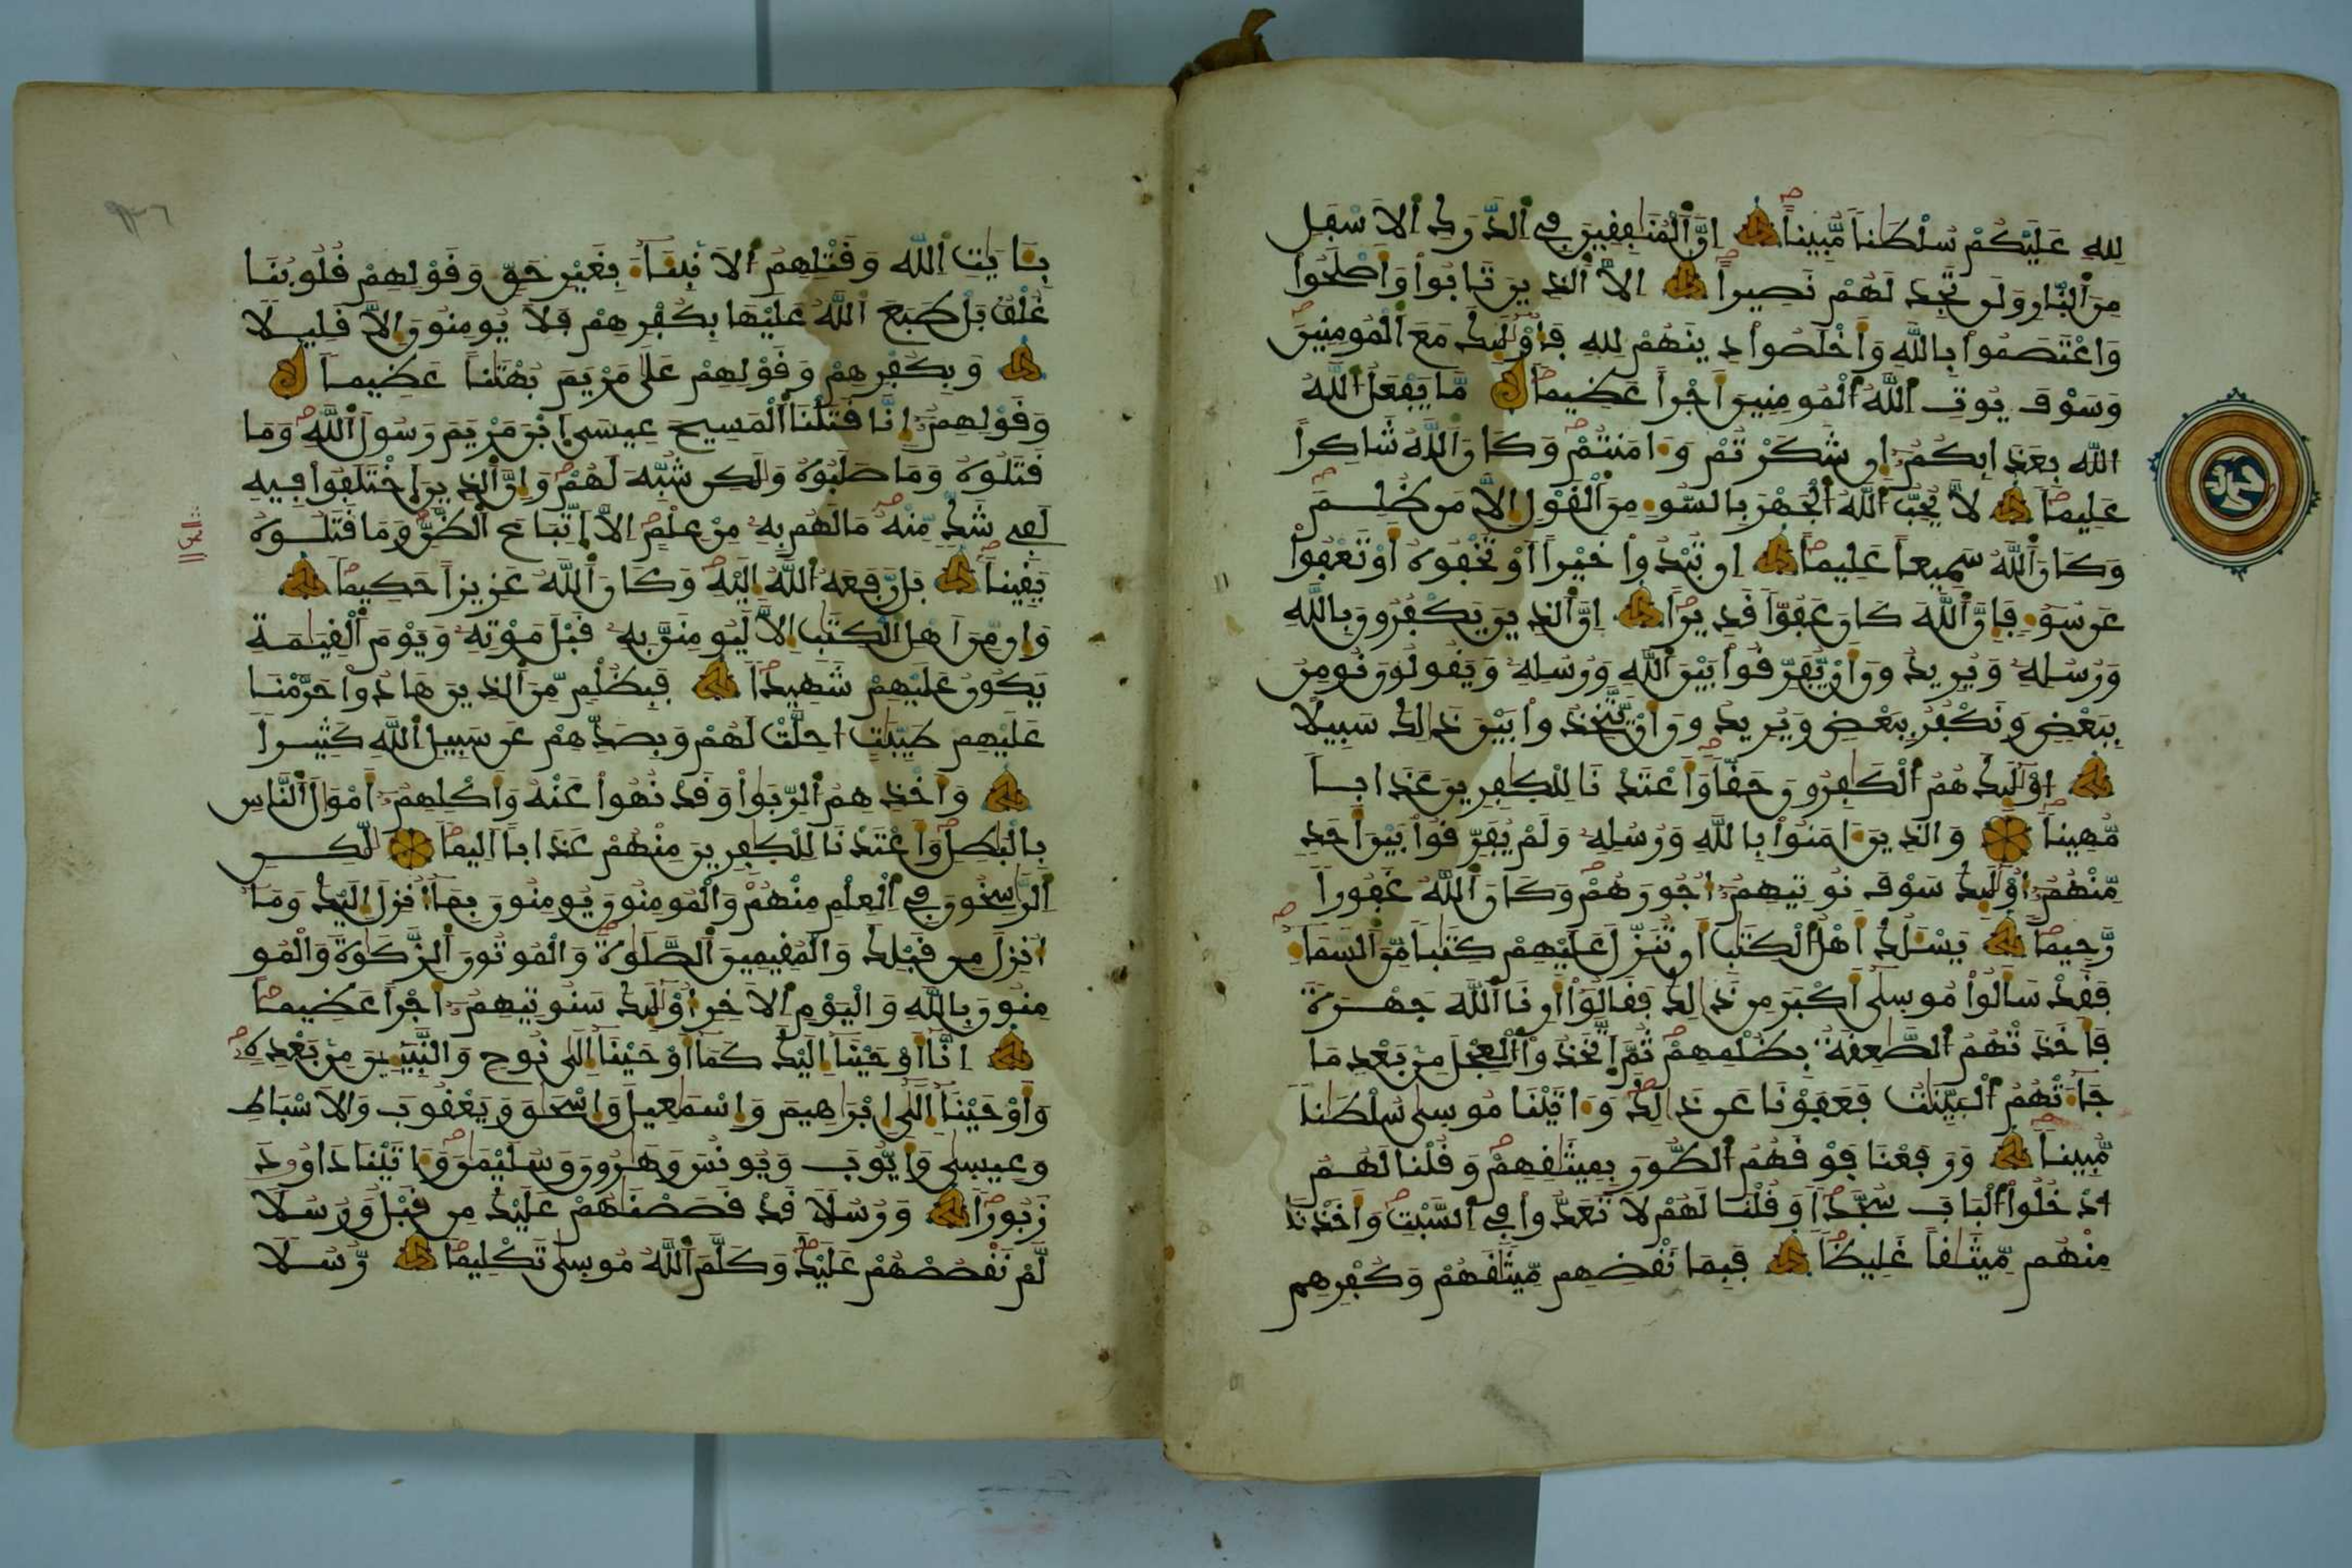 لله عَلَيْكُمْ سُلْطَٰناً مُّبِيناً اِنَّ اَ۬لْمُنَٰفِقِينَ فِے اِ۬لدَّرَكِ اِ۬لَاسْفَلِ
مِنَ اَ۬لنّ۪ارِ وَلَن تَجِدَ لَهُمْ نَصِيراً اِلَّا اَ۬لذِينَ تَابُواْ وَأَصْلَحُواْ
وَاعْتَصَمُواْ بِاللَّهِ وَأَخْلَصُواْ دِينَهُمْ لِلهِ فَأُوْلَٰٓئِكَ مَعَ اَ۬لْمُومِنِينَ
وَسَوْفَ يُوتِ اِ۬للَّهُ اُ۬لْمُومِنِينَ أَجْراً عَظِيماً مَّا يَفْعَلُ اُ۬للَّهُ
الله بِعَذَابِكُمُۥٓ إِن شَكَرْتُمْ وَءَامَنتُمْ وَكَانَ اَ۬للَّهُ شَاكِراً
عَلِيماً لَّا يُحِبُّ اُ۬للَّهُ اُ۬لْجَهْرَ بِالسُّوٓءِ مِنَ اَ۬لْقَوْلِ إِلَّا مَن ظُلِمَ
وَكَانَ اَ۬للَّهُ سَمِيعاً عَلِيماً اِن تُبْدُواْ خَيْراً اَوْ تُخْفُوهُ أَوْ تَعْفُواْ
عَن سُوٓءٖ فَإِنَّ اَ۬للَّهَ كَانَ عَفُوّاً قَدِيراً اِنَّ اَ۬لذِينَ يَكْفُرُونَ بِاللَّهِ
وَرُسُلِهِۦ وَيُرِيدُونَ أَنْ يُّفَرِّقُواْ بَيْنَ اَ۬للَّهِ وَرُسُلِهِۦ وَيَقُولُونَ نُومِنُ
بِبَعْضٖ وَنَكْفُرُ بِبَعْضٖ وَيُرِيدُونَ أَنْ يَّتَّخِذُواْ بَيْنَ ذَٰلِكَ سَبِيلاً
اوْلَٰٓئِكَ هُمُ اُ۬لْكَٰفِرُونَ حَقّاً وَأَعْتَدْنَا لِلْكٰ۪فِرِينَ عَذَاباً
مُّهِيناً وَالذِينَ ءَامَنُواْ بِاللَّهِ وَرُسُلِهِۦ وَلَمْ يُفَرِّقُواْ بَيْنَ أَحَدٖ
مِّنْهُمُۥٓ أُوْلَٰٓئِكَ سَوْفَ نُوتِيهِمُۥٓ أُجُورَهُمْ وَكَانَ اَ۬للَّهُ غَفُوراً
رَّحِيماً يَسْـَٔلُكَ أَهْلُ اُ۬لْكِتَٰبِ أَن تُنَزِّلَ عَلَيْهِمْ كِتَٰباً مِّنَ اَ۬لسَّمَآءِ
فَقَدْ سَأَلُواْ مُوس۪يٰٓ أَكْبَرَ مِن ذَٰلِكَ فَقَالُوٓاْ أَرِنَا اَ۬للَّهَ جَهْرَةً
فَأَخَذَتْهُمُ اُ۬لصَّٰعِقَةُ بِظُلْمِهِمْ ثُمَّ اَ۪تَّخَذُواْ اُ۬لْعِجْلَ مِنۢ بَعْدِ مَا
جَآءَتْهُمُ اُ۬لْبَيِّنَٰتُ فَعَفَوْنَا عَن ذَٰلِكَ وَءَاتَيْنَا مُوس۪يٰ سُلْطَٰناً
مُّبِيناً وَرَفَعْنَا فَوْقَهُمُ اُ۬لطُّورَ بِمِيثَٰقِهِمْ وَقُلْنَا لَهُمُ
ادْخُلُواْ اُ۬لْبَابَ سُجَّداً وَقُلْنَا لَهُمْ لَا تَعَدُّواْ فِے اِ۬لسَّبْتِ وَأَخَذْنَا
مِنْهُم مِّيثَٰقاً غَلِيظاً فَبِمَا نَقْضِهِم مِّيثَٰقَهُمْ وَكُفْرِهِم
بِـَٔايَٰتِ اِ۬للَّهِ وَقَتْلِهِمُ اُ۬لَانۢبِئَآءَ بِغَيْرِ حَقّٖ وَقَوْلِهِمْ قُلُوبُنَا
غُلْفُۢ بَلْ طَبَعَ اَ۬للَّهُ عَلَيْهَا بِكُفْرِهِمْ فَلَا يُومِنُونَ إِلَّا قَلِيلاً
وَبِكُفْرِهِمْ وَقَوْلِهِمْ عَلَىٰ مَرْيَمَ بُهْتَٰناً عَظِيماً
وَقَوْلِهِمُۥٓ إِنَّا قَتَلْنَا اَ۬لْمَسِيحَ عِيسَى اَ۪بْنَ مَرْيَمَ رَسُولَ اَ۬للَّهِ وَمَا
قَتَلُوهُ وَمَا صَلَبُوهُ وَلَٰكِن شُبِّهَ لَهُمْ وَإِنَّ اَ۬لذِينَ اَ۪خْتَلَفُواْ فِيهِ
لَفِے شَكّٖ مِّنْهُ مَا لَهُم بِهِۦ مِنْ عِلْمٍ اِلَّا اَ۪تِّبَاعَ اَ۬لظَّنِّ وَمَا قَتَلُوهُ
يَقِيناً بَل رَّفَعَهُ اُ۬للَّهُ إِلَيْهِ وَكَانَ اَ۬للَّهُ عَزِيزاً حَكِيماً
وَإِن مِّنَ اَهْلِ اِ۬لْكِتَٰبِ إِلَّا لَيُومِنَنَّ بِهِۦ قَبْلَ مَوْتِهِۦ وَيَوْمَ اَ۬لْقِيَٰمَةِ
يَكُونُ عَلَيْهِمْ شَهِيداً فَبِظُلْمٖ مِّنَ اَ۬لذِينَ هَادُواْ حَرَّمْنَا
عَلَيْهِمْ طَيِّبَٰتٍ اُحِلَّتْ لَهُمْ وَبِصَدِّهِمْ عَن سَبِيلِ اِ۬للَّهِ كَثِيراً
وَأَخْذِهِمُ اُ۬لرِّبَوٰاْ وَقَدْ نُهُواْ عَنْهُ وَأَكْلِهِمُۥٓ أَمْوَٰلَ اَ۬لنَّاسِ
بِالْبَٰطِلِ وَأَعْتَدْنَا لِلْكٰ۪فِرِينَ مِنْهُمْ عَذَاباً اَلِيماً لَّٰكِنِ
اِ۬لرَّٰسِخُونَ فِے اِ۬لْعِلْمِ مِنْهُمْ وَالْمُومِنُونَ يُومِنُونَ بِمَآ أُنزِلَ إِلَيْكَ وَمَآ
أُنزِلَ مِن قَبْلِكَ وَالْمُقِيمِينَ اَ۬لصَّلَوٰةَ وَالْمُوتُونَ اَ۬لزَّكَوٰةَ وَالْمُو
مِنُونَ بِاللَّهِ وَالْيَوْمِ اِ۬لَاخِرِ أُوْلَٰٓئِكَ سَنُوتِيهِمُۥٓ أَجْراً عَظِيماً
اِنَّآ أَوْحَيْنَآ إِلَيْكَ كَمَآ أَوْحَيْنَآ إِلَىٰ نُوحٖ وَالنَّبِيٓـِٕينَ مِنۢ بَعْدِهِۦ
وَأَوْحَيْنَآ إِلَىٰٓ إِبْرَٰهِيمَ وَإِسْمَٰعِيلَ وَإِسْحَٰقَ وَيَعْقُوبَ وَالَاسْبَاطِ
وَعِيس۪يٰ وَأَيُّوبَ وَيُونُسَ وَهَٰرُونَ وَسُلَيْمَٰنَ وَءَاتَيْنَا دَاوُۥدَ
زَبُوراً وَرُسُلاً قَدْ قَصَصْنَٰهُمْ عَلَيْكَ مِن قَبْلُ وَرُسُلاً
لَّمْ نَقْصُصْهُمْ عَلَيْكَ وَكَلَّمَ اَ۬للَّهُ مُوس۪يٰ تَكْلِيماً رُّسُلاً